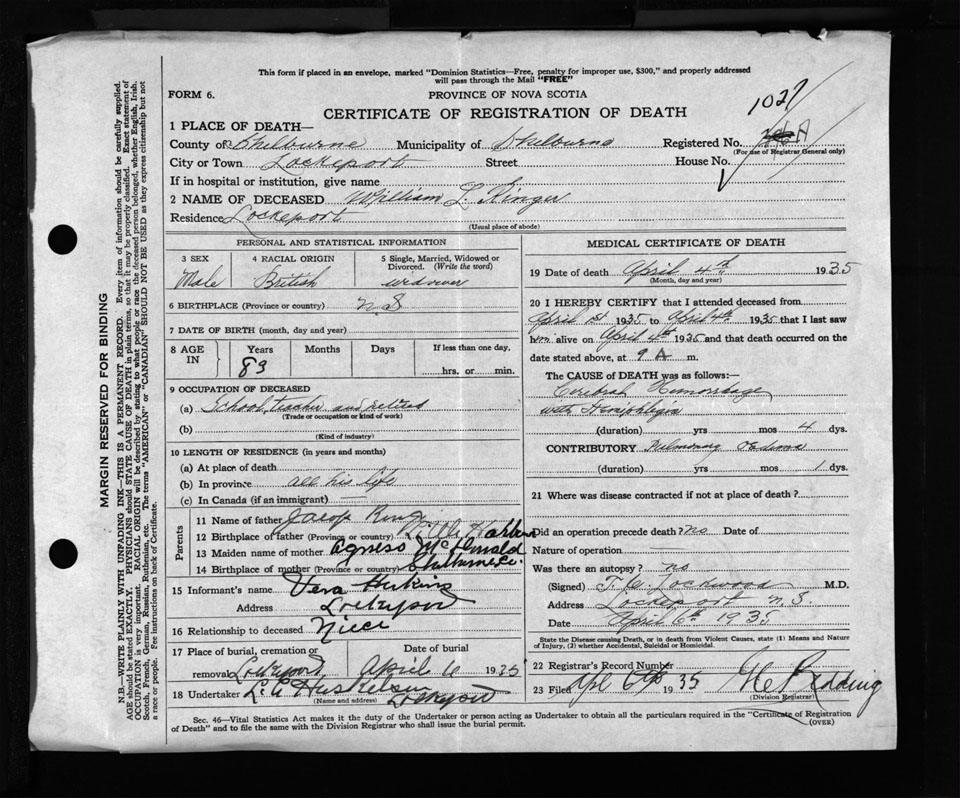 This form if placed in an envelope, marked "Dominion Statistics—Free, penalty for improper use, $300," and properly addressed
will pass through the Mail "FREE"
FORM 6.
PROVINCE OF NOVA SCOTIA
1027
CERTIFICATE OF REGISTRATION OF DEATH
1 PLACE OF DEATH—
County of Shelburne Municipality of Shelburne Registered No. A
(For use of Registrar General only)
City or Town Lockeport Street House No.
If in hospital or institution, give name
2 NAME OF DECEASED William L. Ringer
Residence Lockeport
(Usual place of abode)
PERSONAL AND STATISTICAL INFORMATION
3 SEX 4 RACIAL ORIGIN 5 Single, Married, Widowed or
Divorced. (Write the word)
Male British widower
6 BIRTHPLACE (Province or country) N S
7 DATE OF BIRTH (month, day and year)
8 AGE IN Years Months Days If less than one day,
83 hrs. or min.
9 OCCUPATION OF DECEASED
(a) School teacher and retired
(Trade or occupation or kind of work)
(b)
(Kind of industry)
10 LENGTH OF RESIDENCE (in years and months)
(a) At place of death
(b) In province all his life
(c) In Canada (if an immigrant) —
Parents
11 Name of father Jacob
12 Birthplace of father (Province or country) Little Harbour
13 Maiden name of mother Agness McDonald
14 Birthplace of mother (Province or country) Shelburne Co.
15 Informant's name Vera Huskins
Address Lockeport
16 Relationship to deceased Niece
17 Place of burial, cremation or Date of burial
removal Lockeport April 6 1935
18 Undertaker L. C. Lockeport
(Name and address)
MEDICAL CERTIFICATE OF DEATH
19 Date of death April 4th 1935
(Month, day and year)
20 I HEREBY CERTIFY that I attended deceased from
April 1st 1935 to April 4th 1935 that I last saw
him alive on April 4th 1935 and that death occurred on the
date stated above, at 9 A m.
The CAUSE of DEATH was as follows:—
Cerebral Hemorrhage
with Hemiphlegia
(duration) yrs mos 4 dys.
CONTRIBUTORY Pulmonary Oedema
(duration) yrs mos 1 dys.
21 Where was disease contracted if not at place of death?
Did an operation precede death? no Date of
Nature of operation
Was there an autopsy? no
(Signed) T. C. Lockwood M.D.
Address Lockeport N.S
Date April 6th 1935
State the Disease causing Death, or in death from Violent Causes, state (1) Means and Nature
of Injury, (2) whether Accidental, Suicidal or Homicidal.
22 Registrar's Record Number
23 Filed Apl 6th 1935 Redding
(Division Registrar)
Sec. 46—Vital Statistics Act makes it the duty of the Undertaker or person acting as Undertaker to obtain all the particulars required in the "Certificate of Registration
of Death" and to file the same with the Division Registrar who shall issue the burial permit.
(OVER)
MARGIN RESERVED FOR BINDING
N.B.—WRITE PLAINLY WITH UNFADING INK—THIS IS A PERMANENT RECORD. Every item of information should be carefully supplied.
AGE should be stated EXACTLY. PHYSICIANS should STATE CAUSE OF DEATH in plain terms, so that it may be properly classified. Exact statement of
OCCUPATION is very important. RACIAL ORIGIN will be described by stating to what people or race the deceased person belonged, whether English, Irish,
Scotch, French, German, Russian, Ruthenian, etc. The terms "AMERICAN" or "CANADIAN" SHOULD NOT BE USED as they express citizenship but not
a race or people. See instructions on back of Certificate.